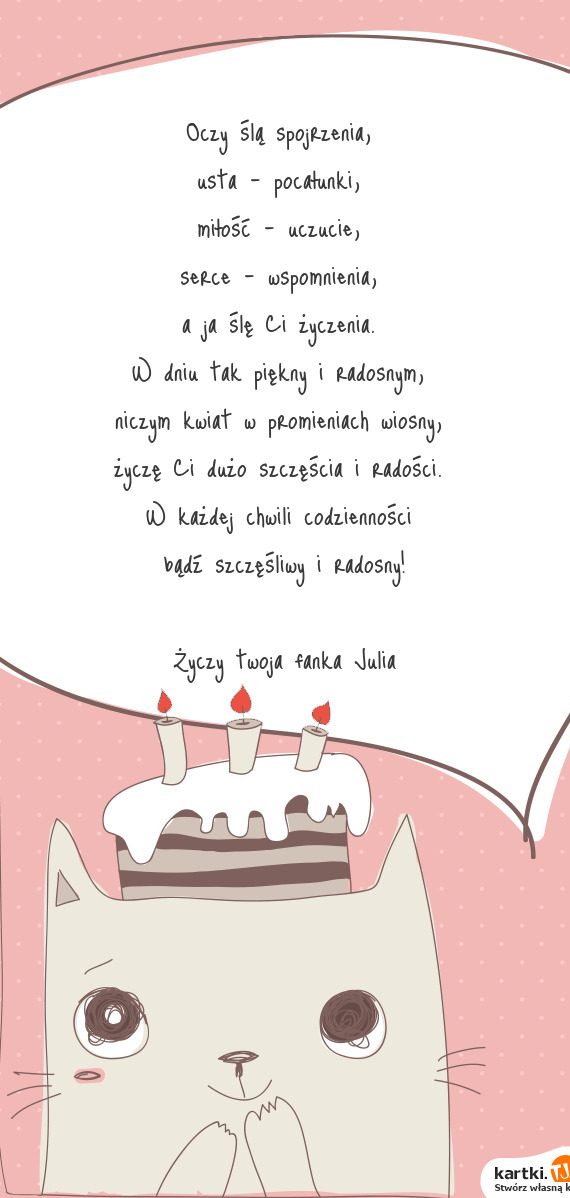 Oczy ślą spojrzenia,
usta - pocałunki,
miłość - uczucie,
serce - wspomnienia,
a ja ślę Ci życzenia.
W dniu tak piękny i radosnym,
niczym kwiat w promieniach wiosny,
życzę Ci dużo szczęścia i radości.
W każdej chwili codzienności
bądź szczęśliwy i radosny!
Życzy twoja fanka Julia
kartki.TJ
Stwórz własną k